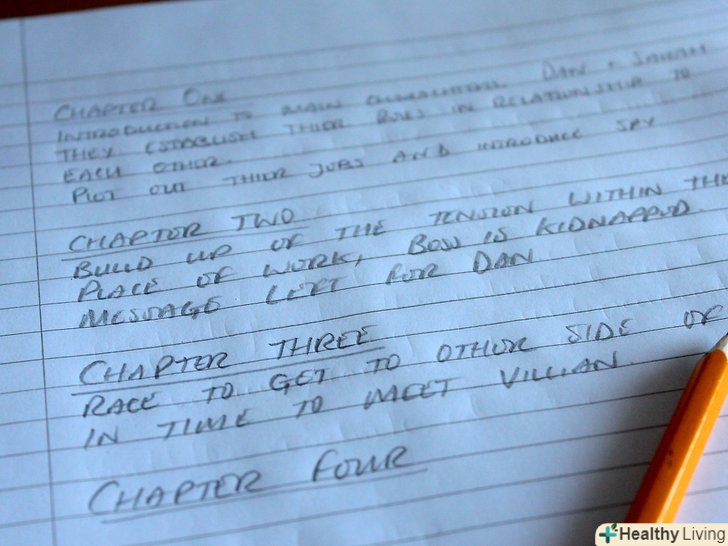 CHAPTER ONE
INTRODUCTION TO MAIN CHARACTERS DAN + SARAH
THEY ESTABLISH THIER ROLES IN RELATIONSHIP TO
EACH OTHER.
PLOT OUT THIER JOBS AND INTRODUCE SPY
CHAPTER TWO
BUILD UP OF THE TENSION WITHIN THE
PLACE OF WORK, BOSS IS KIDNAPPED
MESSAGE LEFT FOR DAN
CHAPTER THREE
RACE TO GET TO OTHER SIDE OF
IN TIME TO MEET VILLIAN
CHAPTER FOUR
Healthy Living